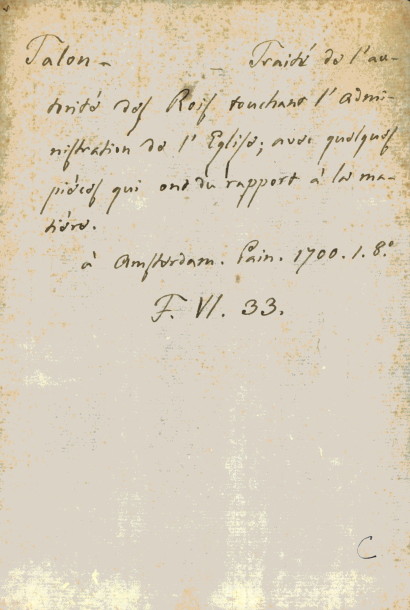 Talon – – Traité de l'au-
torité des Rois touchant l'Admi-
nistration de l'Eglise; avec quelques
piéces qui ont du rapport à la ma-
tiére.
à Amsterdam. Pain. 1700. 1. 8.°
F. VI. 33.
C